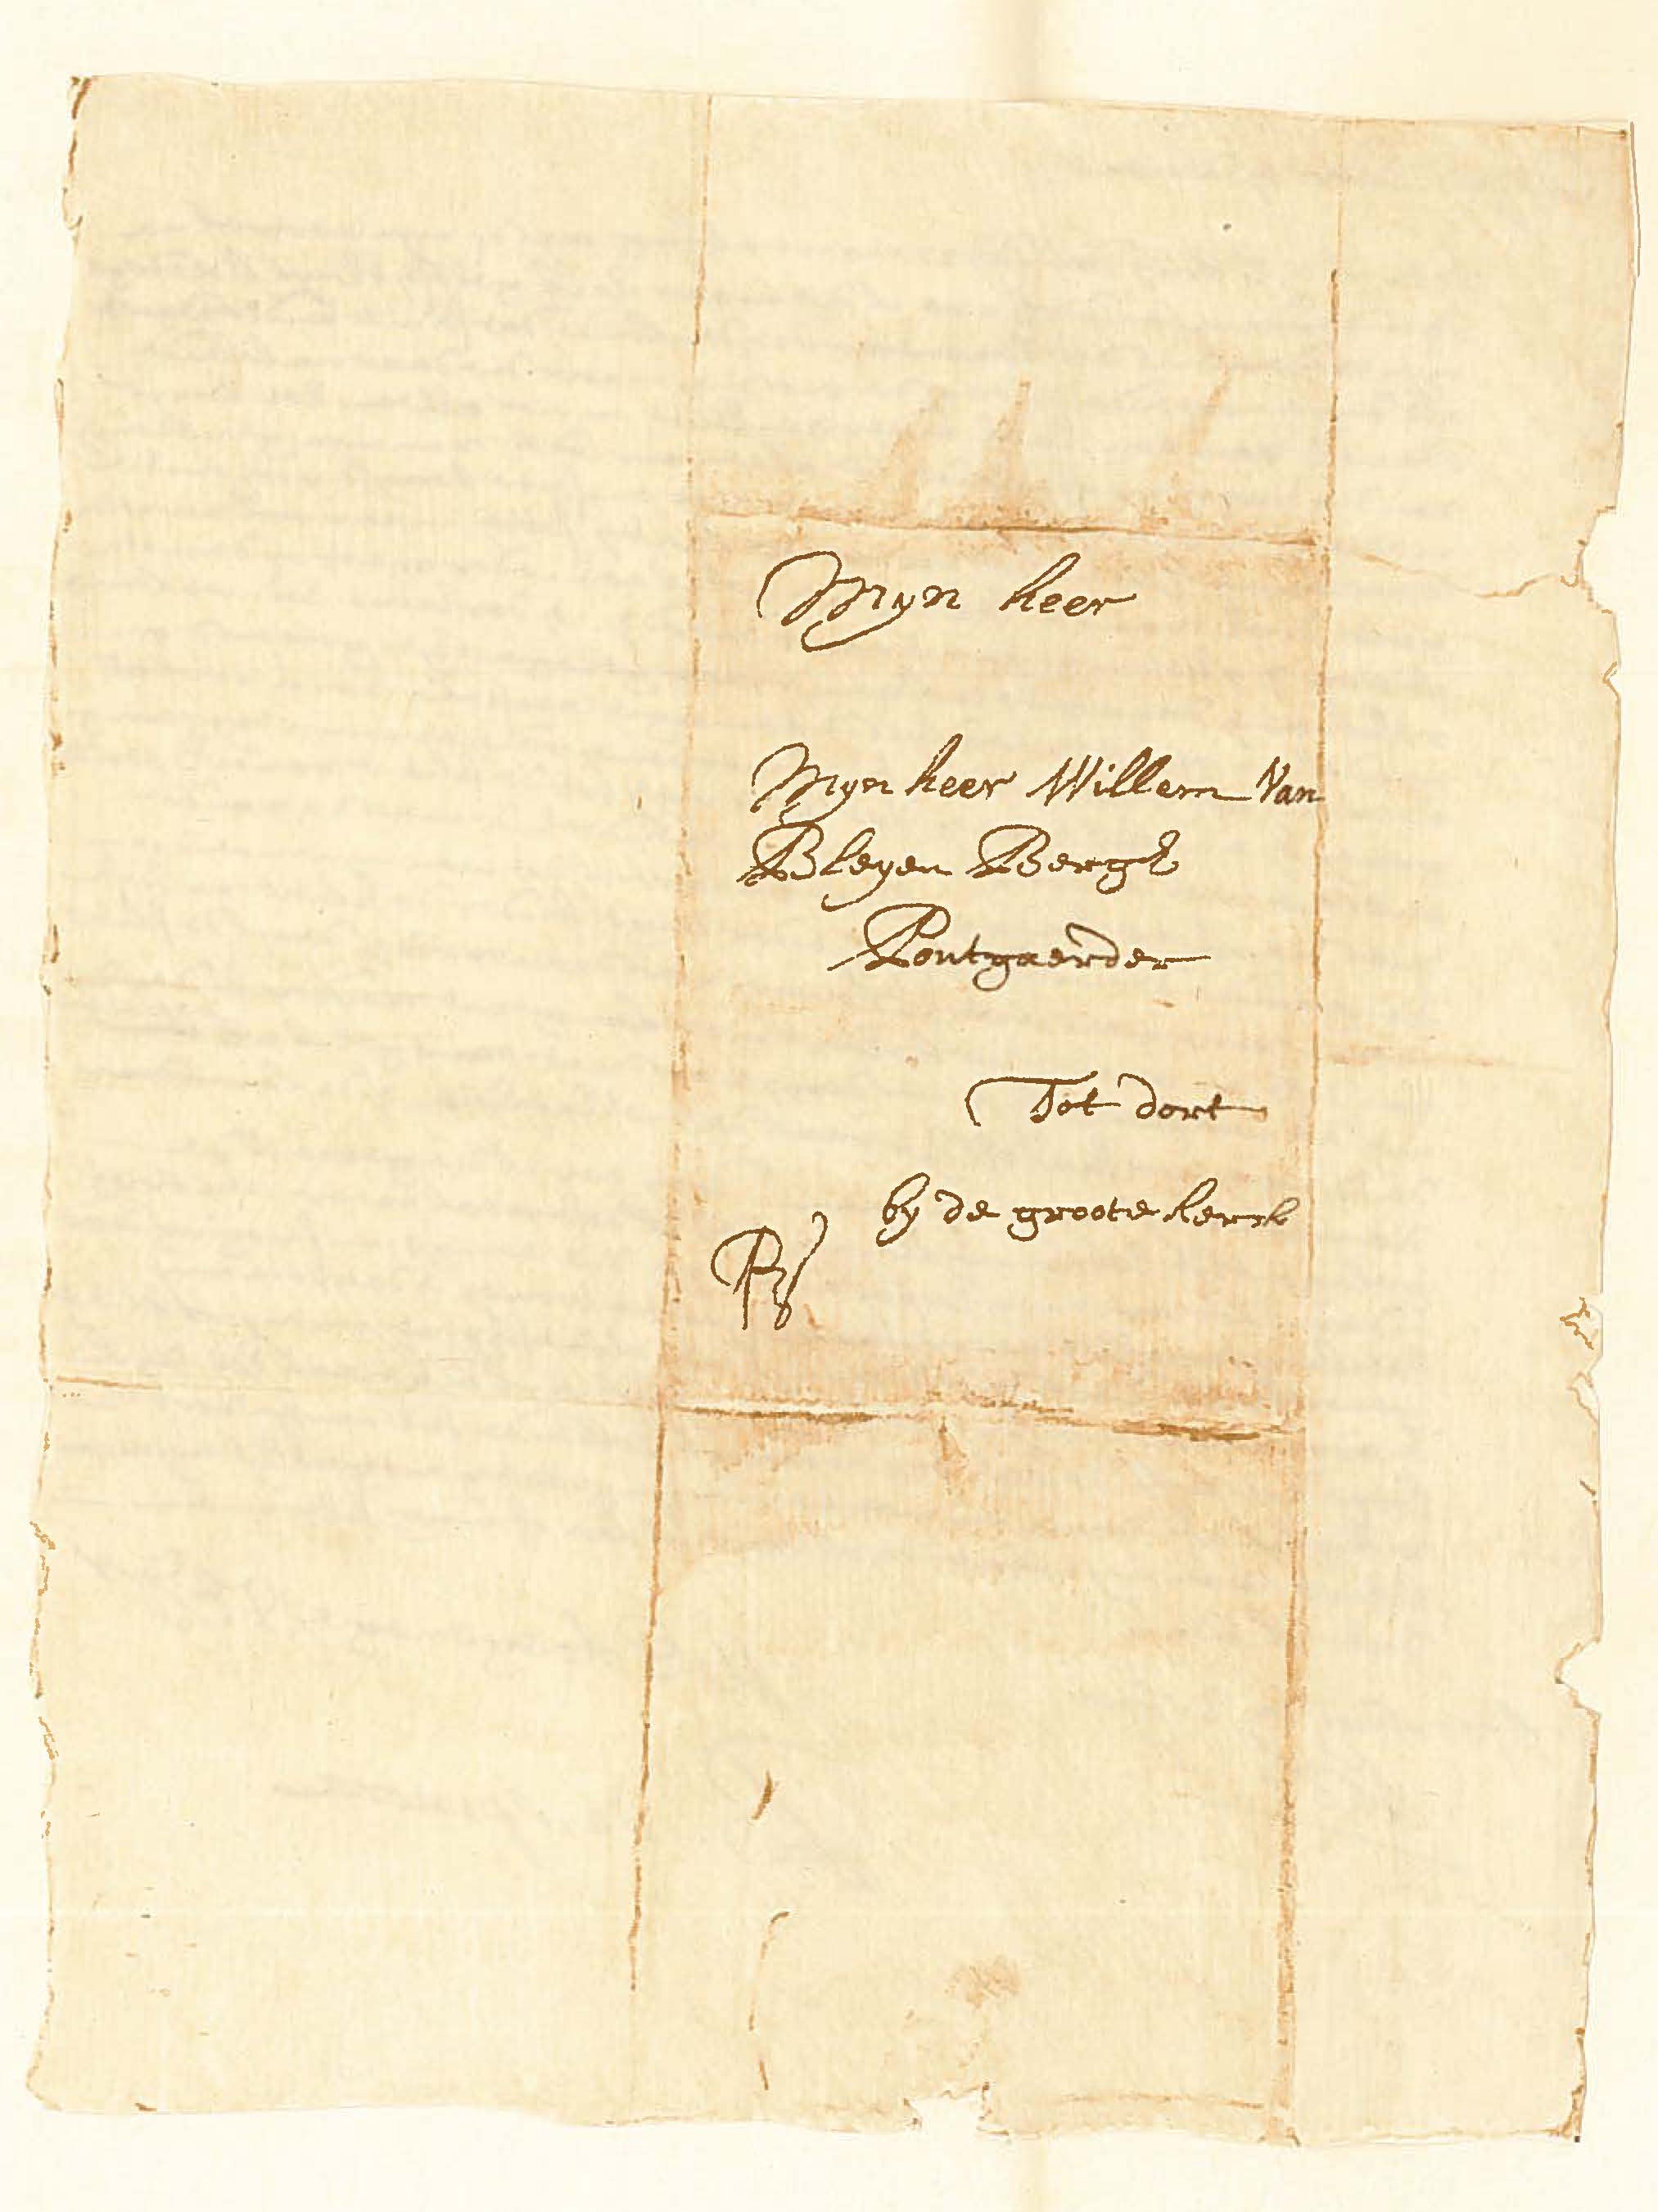 Myn heer
Myn heer Willem Van
Bleyen Bergh
Pontgaerder
Tot dort
by de groote kerck